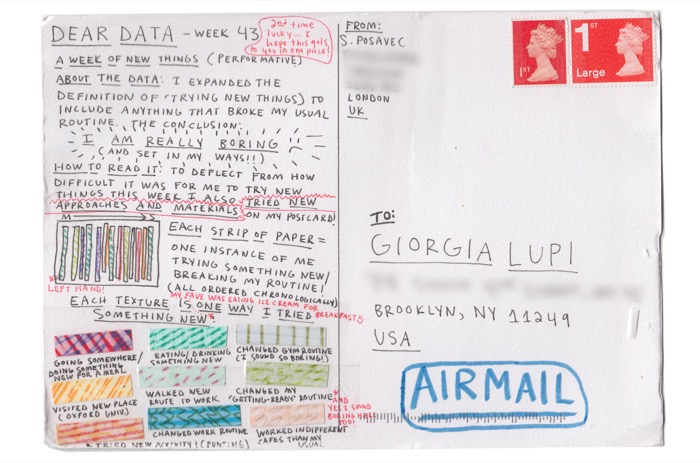 DEAR DATA - WEEK 43
2nd time
lucky... I
hope this gets
to you in one piece!
A WEEK OF NEW THINGS (PERFORMATIVE)
ABOUT THE DATA: I EXPANDED THE
DEFINITION OF 'TRYING NEW THINGS) TO
INCLUDE ANYTHING THAT BROKE MY USUAL
ROUTINE. THE CONCLUSION:
I AM REALLY BORING!!
(AND SET IN MY WAYS!!)
HOW TO READ IT: TO DEFLECT FROM HOW
DIFFICULT IT WAS FOR ME TO TRY NEW
THINGS THIS WEEK I ALSO TRIED NEW
APPROACHES AND MATERIALS ON MY POSTCARD!
M S
LEFT HAND!
EACH STRIP OF PAPER =
ONE INSTANCE OF ME
TRYING SOMETHING NEW/
BREAKING MY ROUTINE!
(ALL ORDERED CHRONOLOGICALLY)
MY FAVE WAS EATING ICE CREAM FOR BREAKFAST
EACH TEXTURE IS ONE WAY I TRIED
SOMETHING NEW
GOING SOMEWHERE/
DOING SOMETHING
NEW FOR A MEAL
EATING/DRINKING
SOMETHING NEW
CHANGED GYM ROUTINE
(I SOUND SO BORING!)
VISITED NEW PLACE
(OXFORD UNIV.)
WALKED NEW
ROUTE TO WORK
CHANGED MY
'GETTING-READY' ROUTINE
AND
YES I SOUND
BORING HERE
TOO!
TRIED NEW ACTIVITY! (PUNTING)
CHANGED WORK ROUTINE
WORKED IN DIFFERENT
CAFES THAN MY
USUAL
FROM:
S. POSAVEC
LONDON
UK
1ST
1ST
Large
TO:
GIORGIA LUPI
BROOKLYN, NY 11249
USA
AIRMAIL